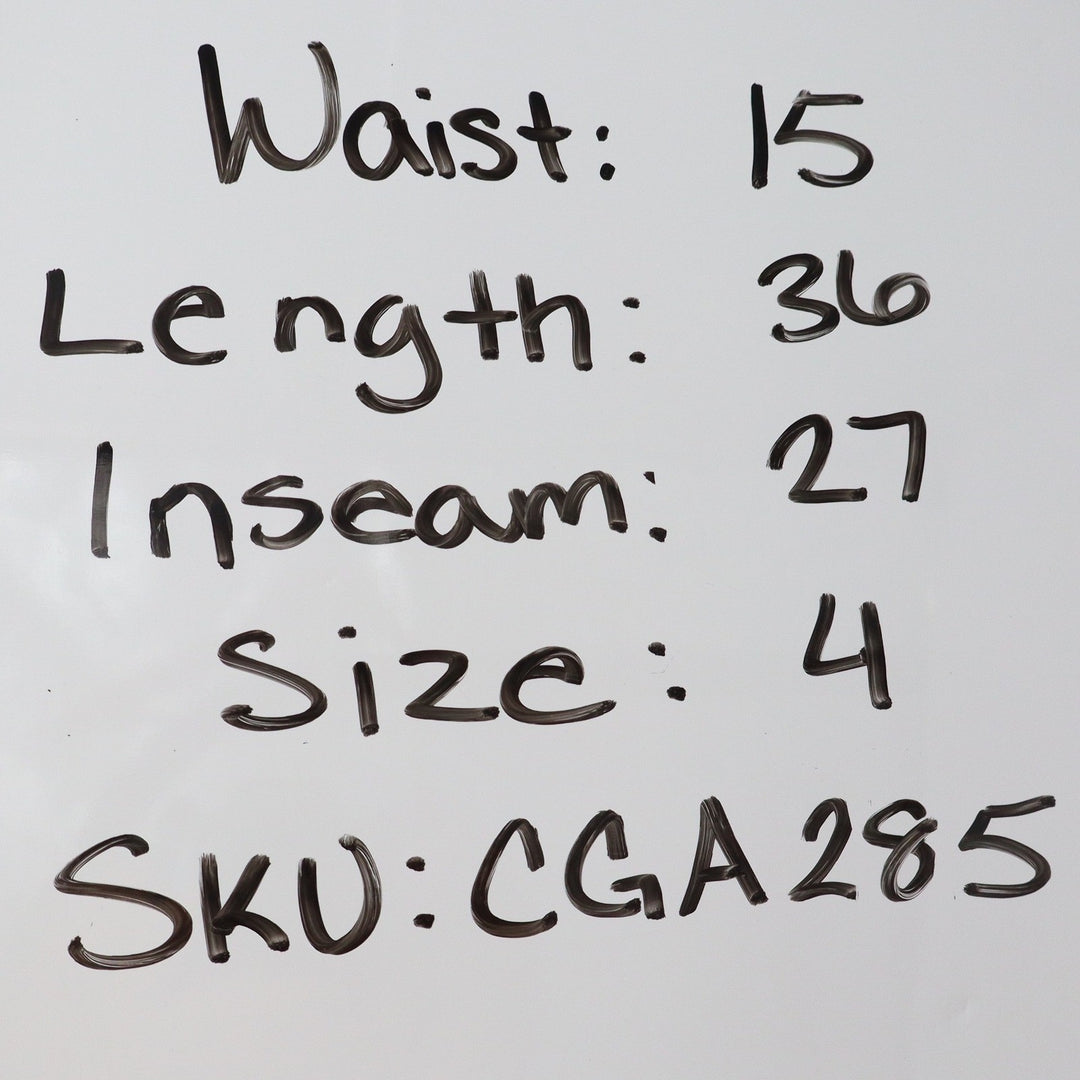 Waist: 15
Length: 36
Inseam: 27
Size: 4
SKU: CGA285